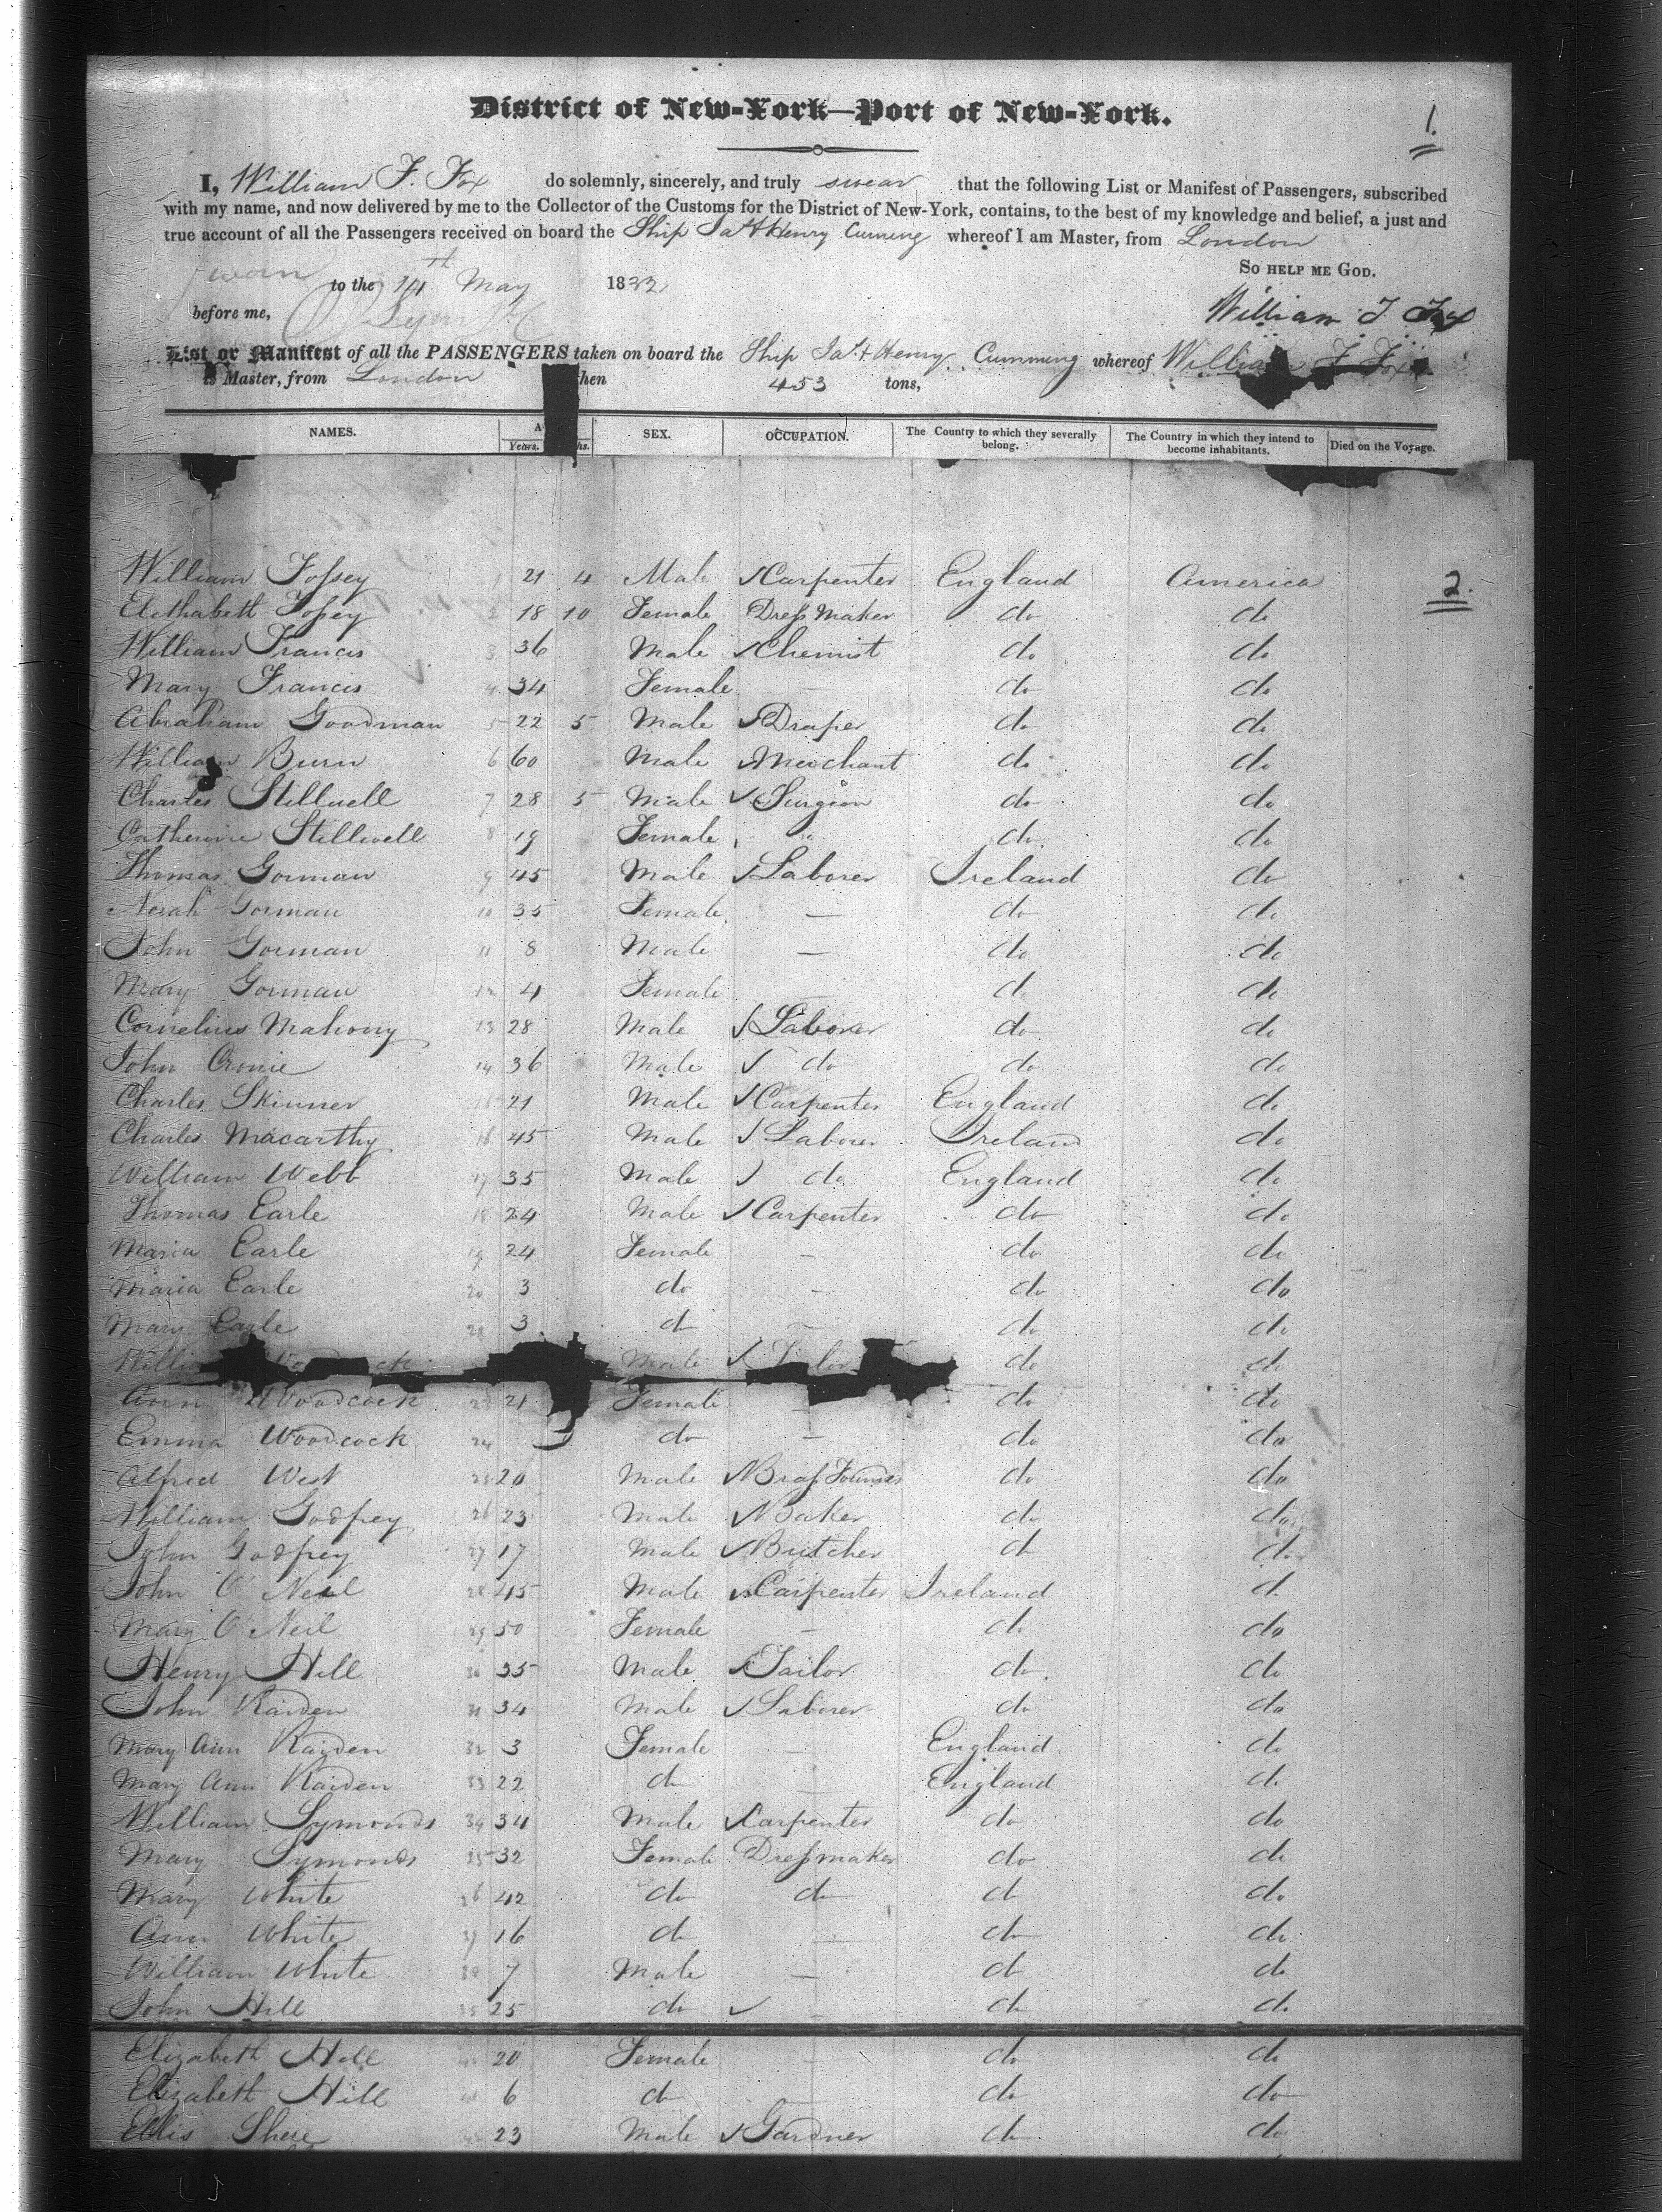 1.
District of New-York—Port of New-York.
I, William F. Fox do solemnly, sincerely, and truly swear that the following List or Manifest of Passengers, subscribed
with my name, and now delivered by me to the Collector of the Customs for the District of New-York, contains, to the best of my knowledge and belief, a just and
true account of all the Passengers received on board the Ship Jas & Henry Cuming whereof I am Master, from London
So help me God.
Sworn to the 14th May 1832
before me, William F Fox
List or Manifest of all the PASSENGERS taken on board the Ship Jas & Henry Cumming whereof William F Fox
is Master, from London 453 tons,
NAMES. Years. SEX. OCCUPATION. The Country to which they severally belong. The Country in which they intend to become inhabitants. Died on the Voyage.
William Fossey 1 21 4 Male Carpenter England America 2.
Elethabeth Fossey 2 18 10 Female Dress Maker do do
William Francis 3 36 Male Chemist do do
Mary Francis 4 34 Female — do do
Abraham Goodman 5 22 5 Male Draper do do
William Burn 6 60 Male Merchant do do
Charles Stillwell 7 28 5 Male Surgeon do do
Catherine Stillwell 8 19 Female " do do
Thomas Gorman 9 45 Male Laborer Ireland do
Norah Gorman 10 35 Female — do do
John Gorman 11 8 Male — do do
Mary Gorman 12 4 Female do do
Cornelius Mahony 13 28 Male Laborer do do
John Cronie 14 36 Male do do do
Charles Skinner 15 21 Male Carpenter England do
Charles Macarthy 16 45 Male Laborer Ireland do
William Webb 17 35 Male do England do
Thomas Earle 18 24 Male Carpenter do do
Maria Earle 19 24 Female — do do
Maria Earle 20 3 do — do do
Mary Earle 21 3 do — do do
Male do do
Ann Woodcock 23 21 Female — do do
Emma Woodcock 24 do — do do
Alfred West 25 20 Male Brass Founder do do
William Godfrey 26 23 Male Baker do do
John Godfrey 27 17 Male Butcher do do
John O'Neil 28 45 Male Carpenter Ireland do
Mary O'Neil 29 50 Female — do do
Henry Hill 30 35 Male Tailor do do
John Raiden 31 34 Male Laborer do do
Mary Ann Raiden 32 3 Female — England do
Mary Ann Raiden 33 22 do — England do
William Symonds 34 34 Male Carpenter do do
Mary Symonds 35 32 Female Dressmaker do do
Mary White 36 42 do do do do
Ann White 37 16 do — do do
William White 38 7 Male — do do
John Hill 39 25 do — do do
Elizabeth Hill 20 Female — do do
Elizabeth Hill 6 do do do
Ellis 23 Male Gardner do do